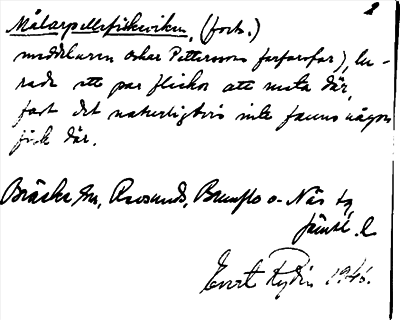 2
Målarpellefiskeviken, (forts.)
meddelaren Oskar Petterssons farfarsfar), lu-
rade ett par flickor att meta där,
fast det naturligtvis inte fanns någon
fisk där.
Bräcke sn, Revsunds, Brunflo o. Näs tg
Jämtl. l
Evert Rydin 1946.